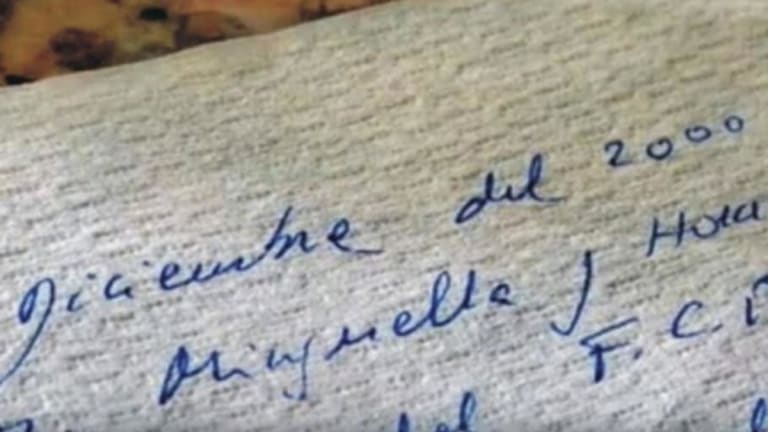 Diciembre del 2000
Minguella y Hora
F.C.B
del